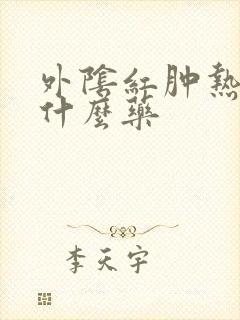 外陰紅肿熱
什麼藥
李天宇